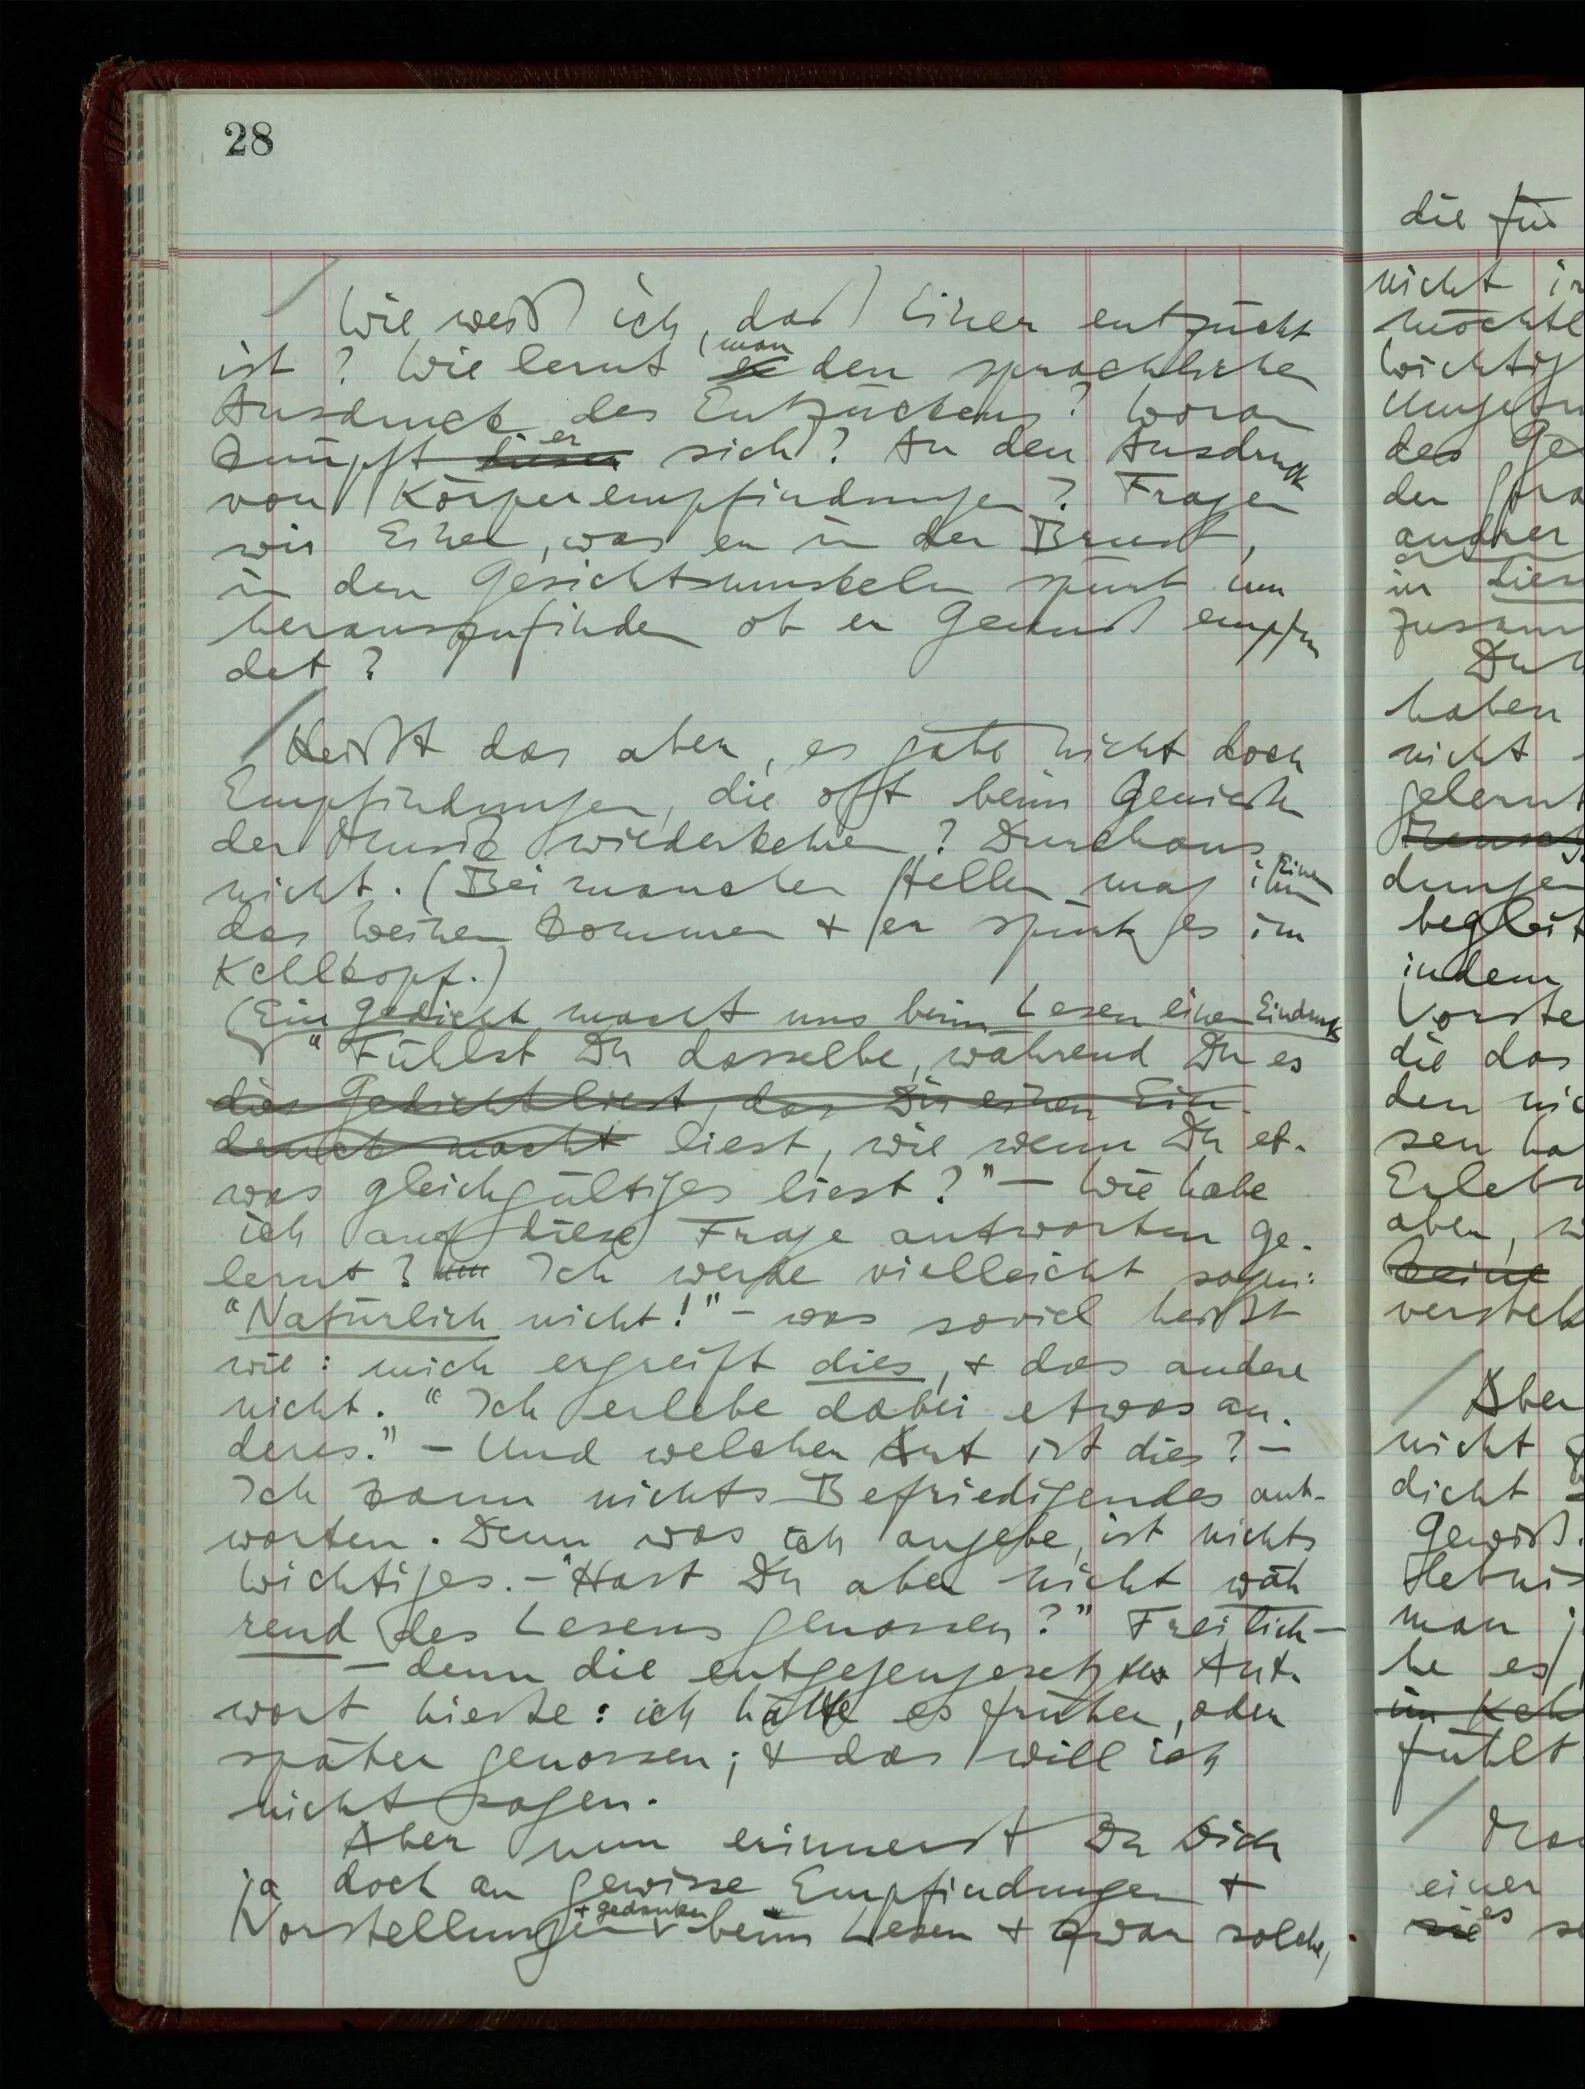 28
/ Wie weiß ich, daß Einer entzückt
ist? Wie lernt ~~er~~ man den sprachlichen
Ausdruck des Entzückens? Woran
knüpft ~~dieser~~ er sich? An den Ausdruck
von Körperempfindungen? Fragen
wir Einen, was er in der Brust,
in den Gesichtsmuskeln spürt um
herauszufinden ob er Genuß empfin
det?
/ Heißt das aber, es gäbe nicht doch
Empfindungen, die oft beim Genießen
der Musik wiederkehren? Durchaus
nicht. (Bei manchen Stellen mag ihm Einem
das Weinen kommen + er spürt es im
Kehlkopf.)
(Ein Gedicht macht uns beim Lesen einen Eindruck
"Fühlst Du dasselbe, während Du es
~~dies Gedicht liest, das Dir einen Ein-~~
~~druck macht~~ liest, wie wenn Du et-
was gleichgültiges liest?" — Wie habe
ich auf diese Frage antworten ge-
lernt? Ich werde vielleicht sagen:
"Natürlich nicht!" – was soviel heißt
wie: mich ergreift dies, + das andere
nicht. "Ich erlebe dabei etwas an-
deres." – Und welcher Art ist dies? –
Ich kann nichts Befriedigendes ant-
worten. Denn was ich angebe, ist nichts
Wichtiges. – "Hast Du aber nicht wäh
rend des Lesens genossen?" Freilich –
– denn die entgegengesetzte Ant-
wort hieße: ich hätte es früher, oder
später genossen; + das will ich
nicht sagen.
Aber nun erinnerst Du Dich
ja doch an gewisse Empfindungen +
Vorstellungen + Gedanken beim Lesen + zwar solche,
die für
nicht
möchte
wichtig
des Ge
der
andrer
in
zusam
haben
nicht
gelernt
dungen
begleit
indem
Vorste
die das
den nic
sen ha
Erleb
aber, w
~~keine~~
versteh
/ Aber
nicht g
dicht
Gewiß.
man j
he es
~~im Keh~~
fühlt
/
einer
~~sie~~ es se